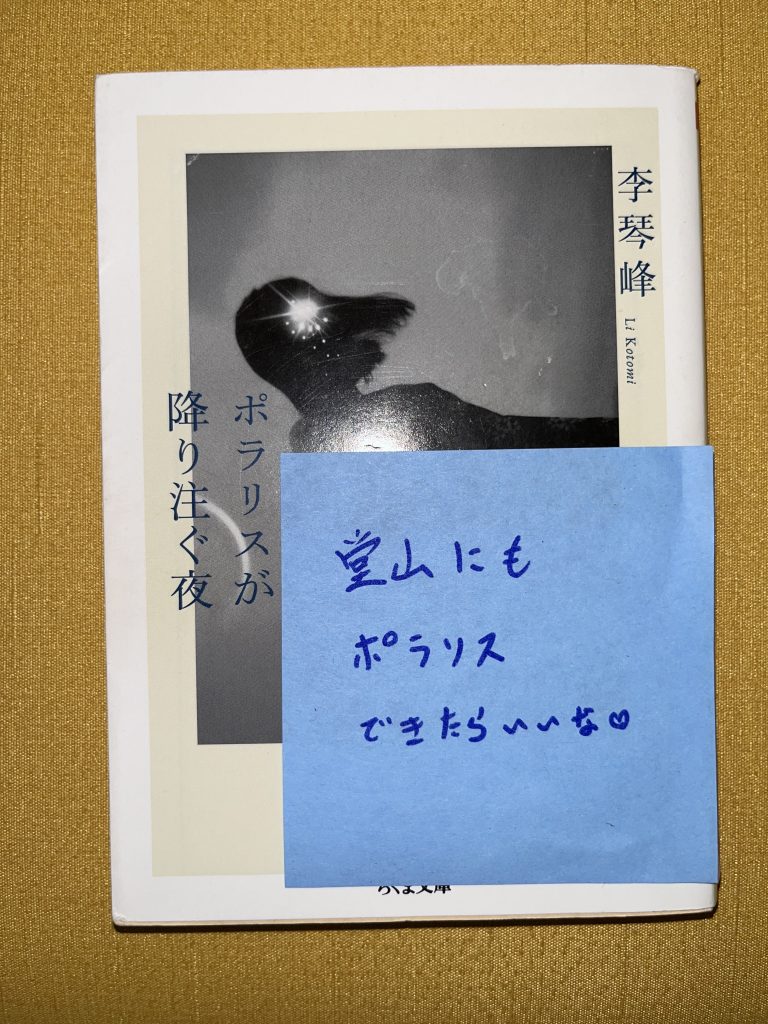 李琴峰
Li Kotomi
ポラリスが
降り注ぐ夜
堂山にも
ポラリス
できたらいいな♡
ちくま文庫